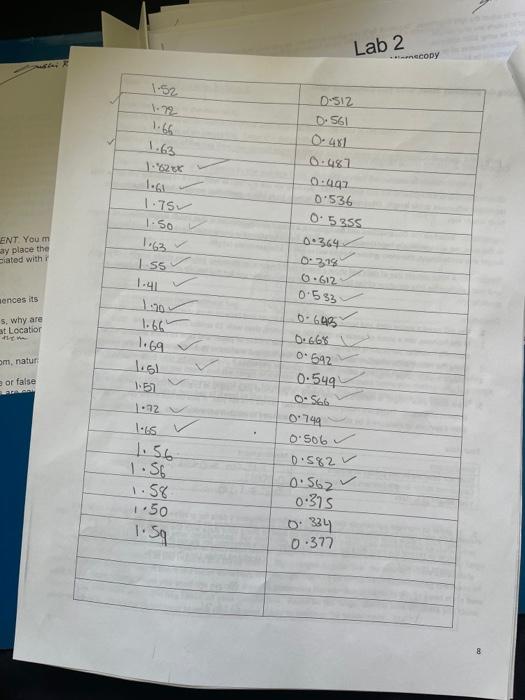 Lab 2
1.52 0.512
1.72 0.561
1.66 0.481
1.63 0.487
0.497
1.61 0.536
1.75 0.5355
1.50 0.364
1.63 0.378
1.55 0.612
1.41 0.533
1.70
1.66 0.668
1.69 0.592
1.51 0.549
1.57 0.566
1.72 0.749
1.65 0.506
1.56 0.582
1.56 0.562
1.58 0.375
1.50 0.334
1.59 0.377
8
ENT. You m
ay place the
ciated with
ences its
s, why are
at Location
om, natur
e or false